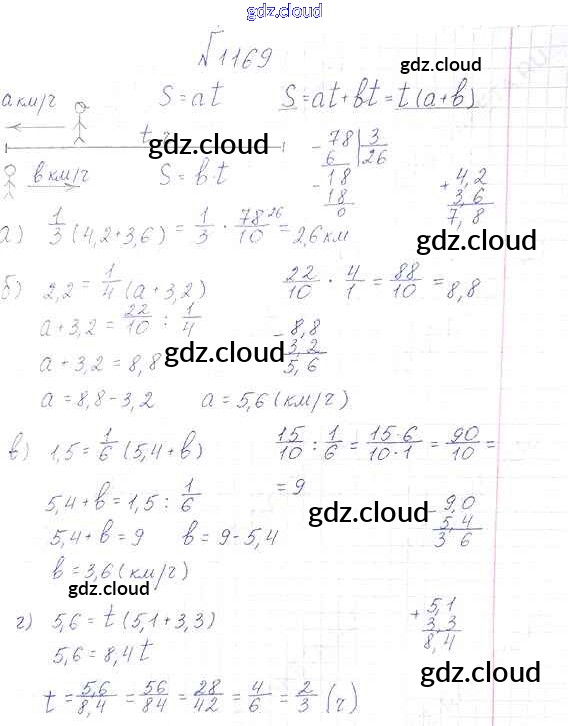 gdz.cloud
√1169
gdz.cloud
a км/ч S=at S=at+bt=t(a+b)
gdz.cloud
в км/ч S=b·t
- 78 | 3
6 26
- 18
18
0
+ 4,2
3,6
7,8
а) 1/3 (4,2+3,6) = 1/3 · 78 26/10 = 2,6 км
gdz.cloud
gdz.cloud
б) 2,2 = 1/4 (a+3,2) 22/10 · 4/1 = 88/10 = 8,8
a+3,2 = 22/10 : 1/4
a+3,2 = 8,8
gdz.cloud
- 8,8
3,2
5,6
a = 8,8-3,2 a = 5,6 (км/ч)
в) 1,5 = 1/6 (5,4+b) 15/10 : 1/6 = 15·6/10·1 = 90/10 =
= 9
5,4+b = 1,5 : 1/6
gdz.cloud
5,4+b = 9 b = 9-5,4
- 9,0
5,4
3 6
b = 3,6 (км/ч)
gdz.cloud
г) 5,6 = t (5,1+3,3)
+ 5,1
3,3
8,4
5,6 = 8,4t
gdz.cloud
t = 5,6/8,4 = 56/84 = 28/42 = 4/6 = 2/3 (ч)